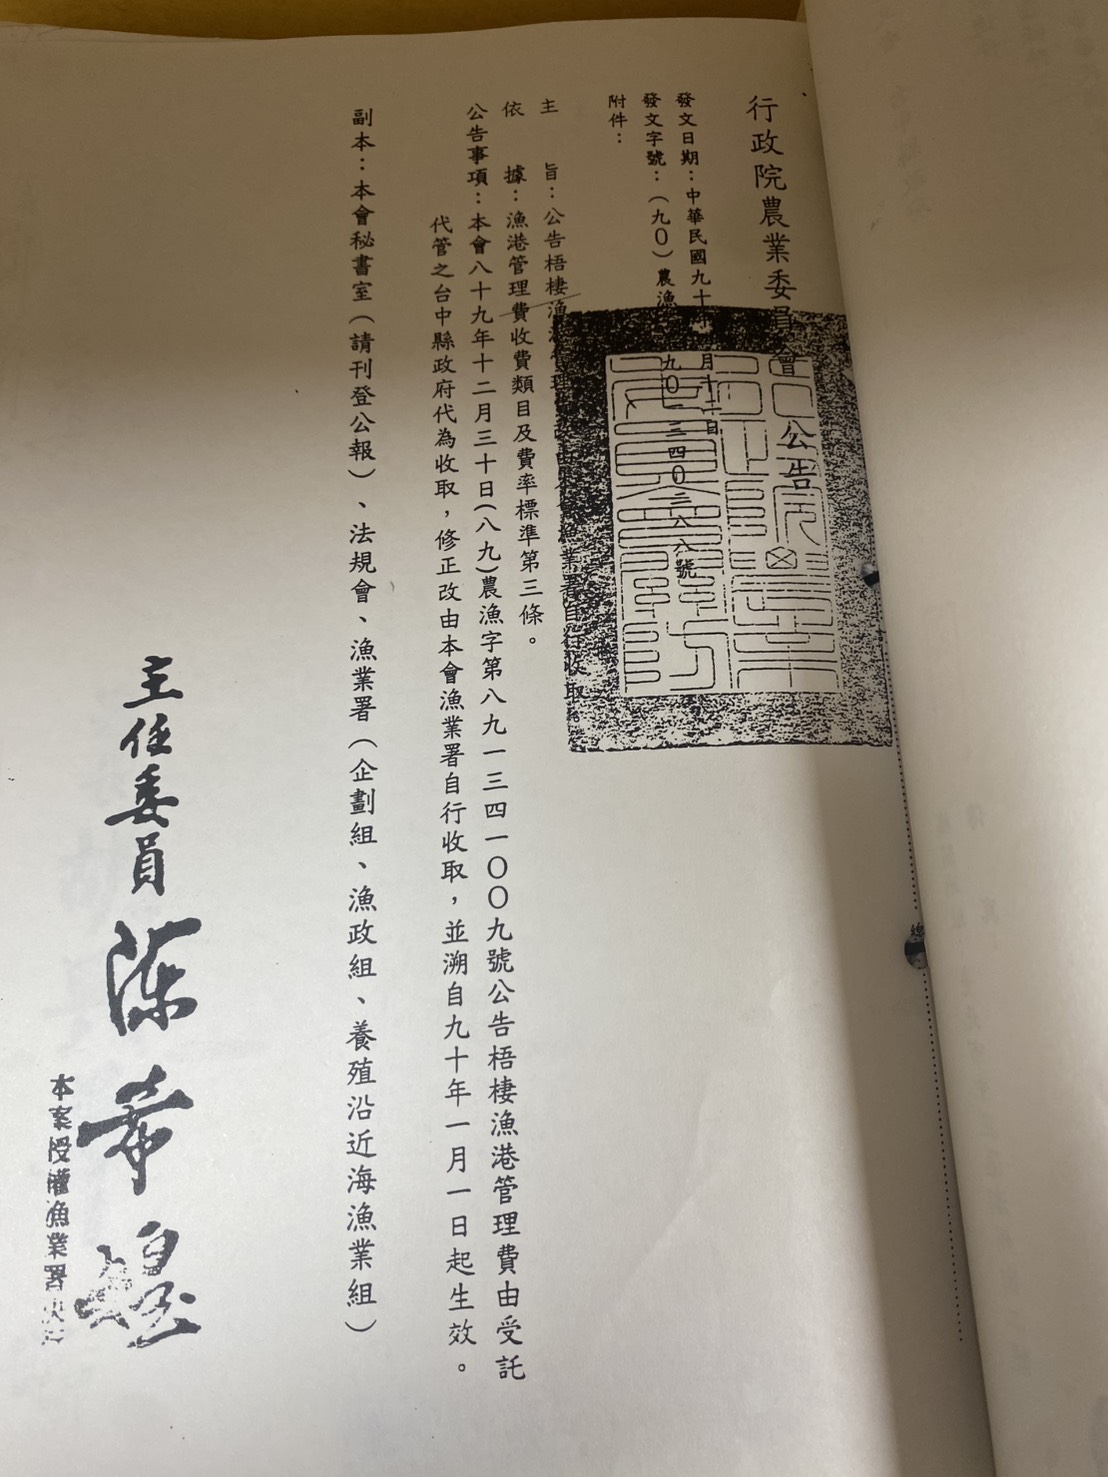 行政院農業委員會公告
發文日期：中華民國九十年 月十二日
發文字號：（九０）農漁 九０一三四０二八八號
附件：
主　旨：公告梧棲漁港管理 改由 漁業署自行收取。
依　據：漁港管理費收費類目及費率標準第三條。
公告事項：本會八十九年十二月三十日(八九)農漁字第八九一三四一００九號公告梧棲漁港管理費由受託
代管之台中縣政府代為收取，修正改由本會漁業署自行收取，並溯自九十年一月一日起生效。
副本：本會秘書室（請刊登公報）、法規會、漁業署（企劃組、漁政組、養殖沿近海漁業組）
主任委員 陳希煌
本案授權漁業署決行